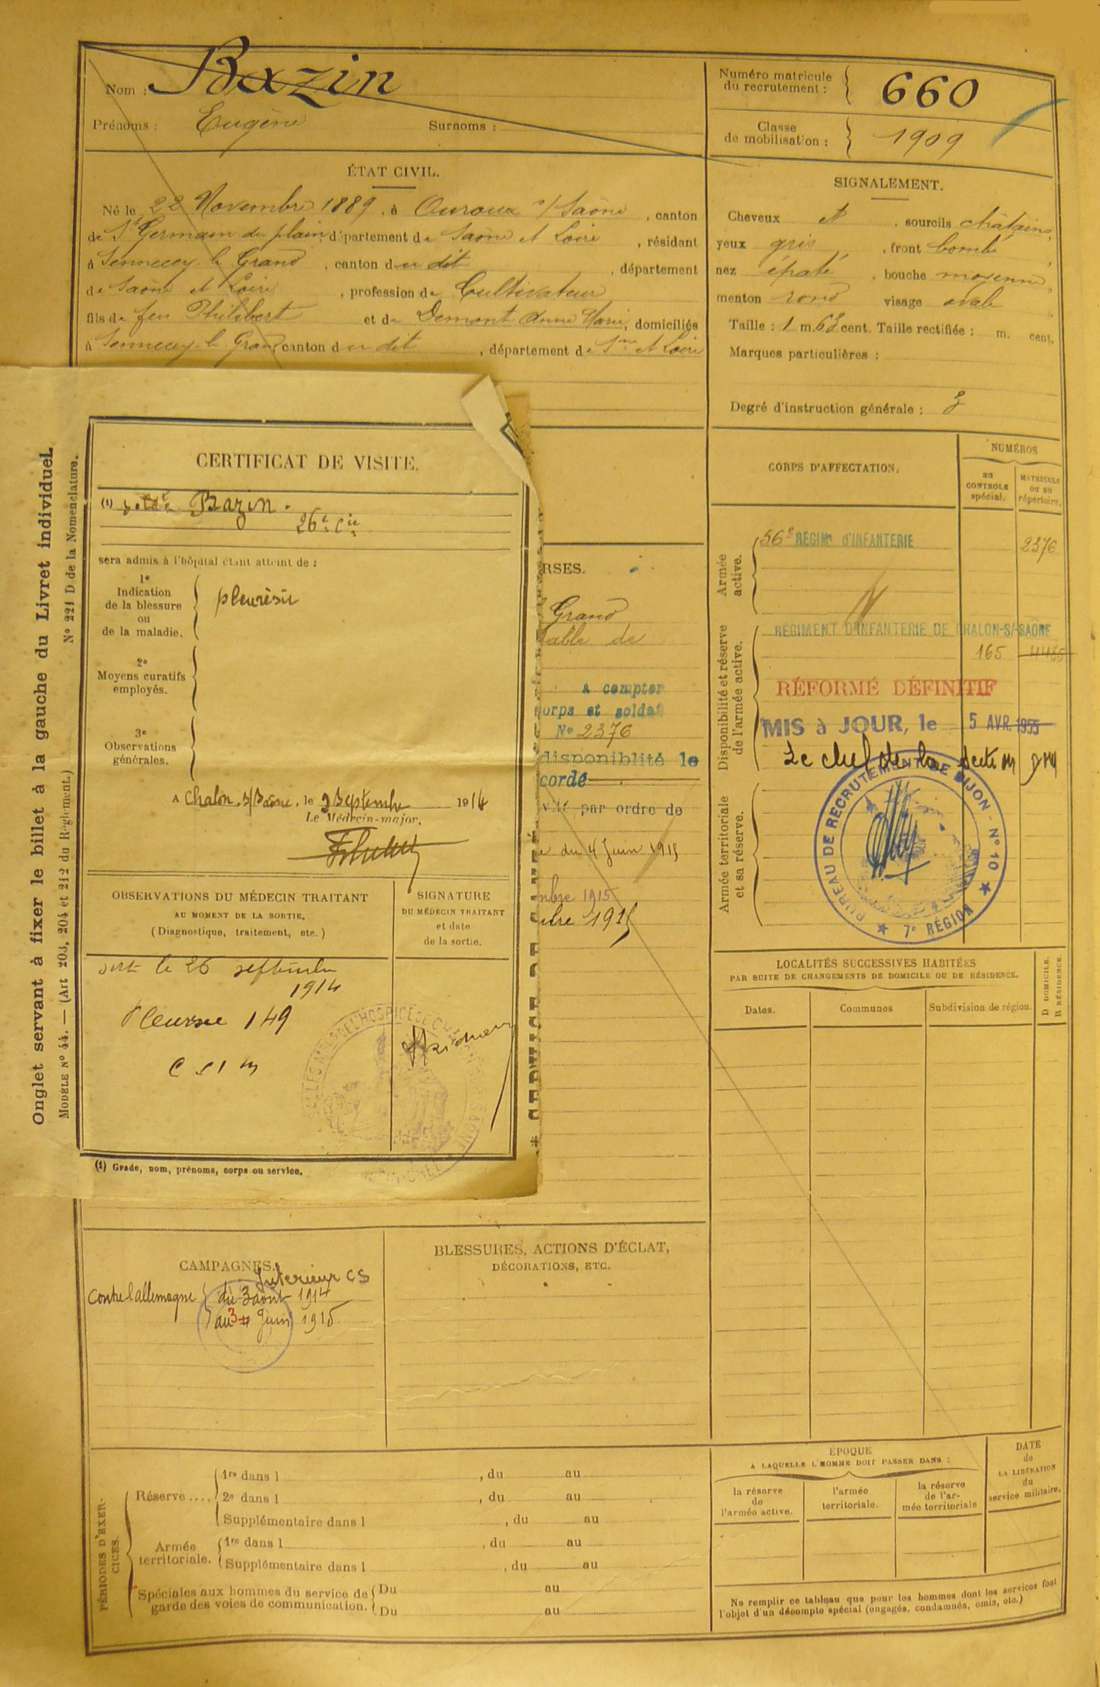 Nom : Bazin
Prénoms : Eugène Surnoms :
Numéro matricule du recrutement : 660
Classe de mobilisation : 1909
ÉTAT CIVIL.
Né le 22 Novembre 1889, à Ouroux s/Saône, canton
de St Germain du plain, département de Saône et Loire, résidant
à Sennecey-le-Grand, canton du dit, département
de Saône et Loire, profession de Cultivateur
fils de feu Philibert et de Demont Anne Marie, domiciliés
à Sennecey-le-Grand canton du dit, département de Sne et Loire
SIGNALEMENT.
Cheveux et, sourcils châtains,
yeux gris, front bombé
nez épaté, bouche moyenne,
menton rond visage ovale
Taille : 1 m. 63 cent. Taille rectifiée : m. cent.
Marques particulières :
Degré d'instruction générale : 3
CORPS D'AFFECTATION.
NUMÉROS
AU CONTROLE spécial.
MATRICULE OU AU répertoire.
Armée active.
56e RÉGIMt D'INFANTERIE 2376
Disponibilité et réserve de l'armée active.
RÉGIMENT D'INFANTERIE DE CHALON-S/-SAÔNE
165
RÉFORMÉ DÉFINITIF
MIS à JOUR, le 5 AVR. 1955
Le chef de la
Armée territoriale et sa réserve.
BUREAU DE RECRUTEMENT DE DIJON - N° 10
7e RÉGION
Onglet servant à fixer le billet à la gauche du Livret individuel
MODÈLE N° 44. — (Art. 203, 204 et 212 du Règlement.)
N° 221 D de la Nomenclature.
CERTIFICAT DE VISITE.
(1) Bazin.
26e Cie
sera admis à l'hôpital étant atteint de :
1° Indication de la blessure ou de la maladie. pleurésie
2° Moyens curatifs employés.
3° Observations générales.
A Chalon s/Saône, le 2 Septembre 1914
Le Médecin-major,
OBSERVATIONS DU MÉDECIN TRAITANT
AU MOMENT DE LA SORTIE,
(Diagnostique, traitement, etc.)
SIGNATURE
DU MÉDECIN TRAITANT
et date
de la sortie.
sort le 26 septembre
1914
Pleurésie 149
(1) Grade, nom, prénoms, corps ou service.
RSES.
Grand
able de
A compter
orps et soldat
N° 2376
disponiblité le
cordé
par ordre de
du 4 Juin 1915
mbre 1915
bre 1915
LOCALITÉS SUCCESSIVES HABITÉES
PAR SUITE DE CHANGEMENTS DE DOMICILE OU DE RÉSIDENCE.
Dates. Communes Subdivision de région.
D DOMICILE.
R RÉSIDENCE.
CAMPAGNES.
Intérieur CS
Contre l'allemagne du 3 août 1914
au 3 Juin 1915
BLESSURES, ACTIONS D'ÉCLAT,
DÉCORATIONS, ETC.
PÉRIODES D'EXERCICES.
Réserve ....
1re dans l , du au
2e dans l , du au
Supplémentaire dans l , du au
Armée territoriale.
1re dans l , du au
Supplémentaire dans l , du au
Spéciales aux hommes du service de garde des voies de communication.
Du au
Du au
ÉPOQUE
A LAQUELLE L'HOMME DOIT PASSER DANS :
la réserve de l'armée active.
l'armée territoriale.
la réserve de l'armée territoriale
DATE de LA LIBÉRATION du service militaire.
Ne remplir ce tableau que pour les hommes dont les services font
l'objet d'un décompte spécial (engagés, condamnés, omis, etc.)